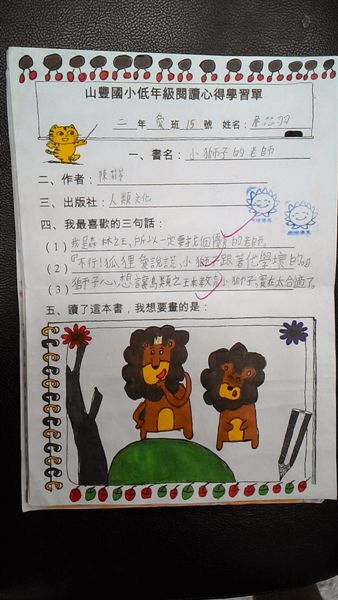 山豐國小低年級閱讀心得學習單
二年愛班15號 姓名:
一、書名:小獅子的老師
二、作者:陳
三、出版社:人類文化
四、我最喜歡的三句話:
(1)我是森林之王,所以一定要找個優秀的老師。
(2)『不行!狐狸愛說謊,小獅子跟著他學壞的。』
(3)獅子心想讓鳥類之王來教小獅子,實在太合適了。
五、讀了這本書,我想要畫的是: